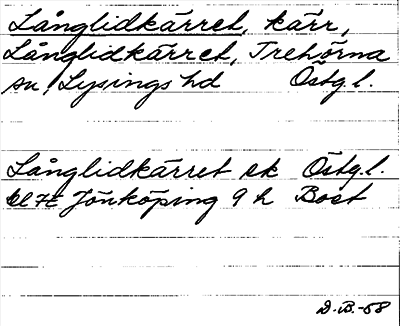 Långlidkärret, kärr,
Långlidkärret, Trehörna
sn, Lysings hd Östg. l.
Långlidkärret ek Östg. l.
Jönköping 9 h Bost
D. B. -58